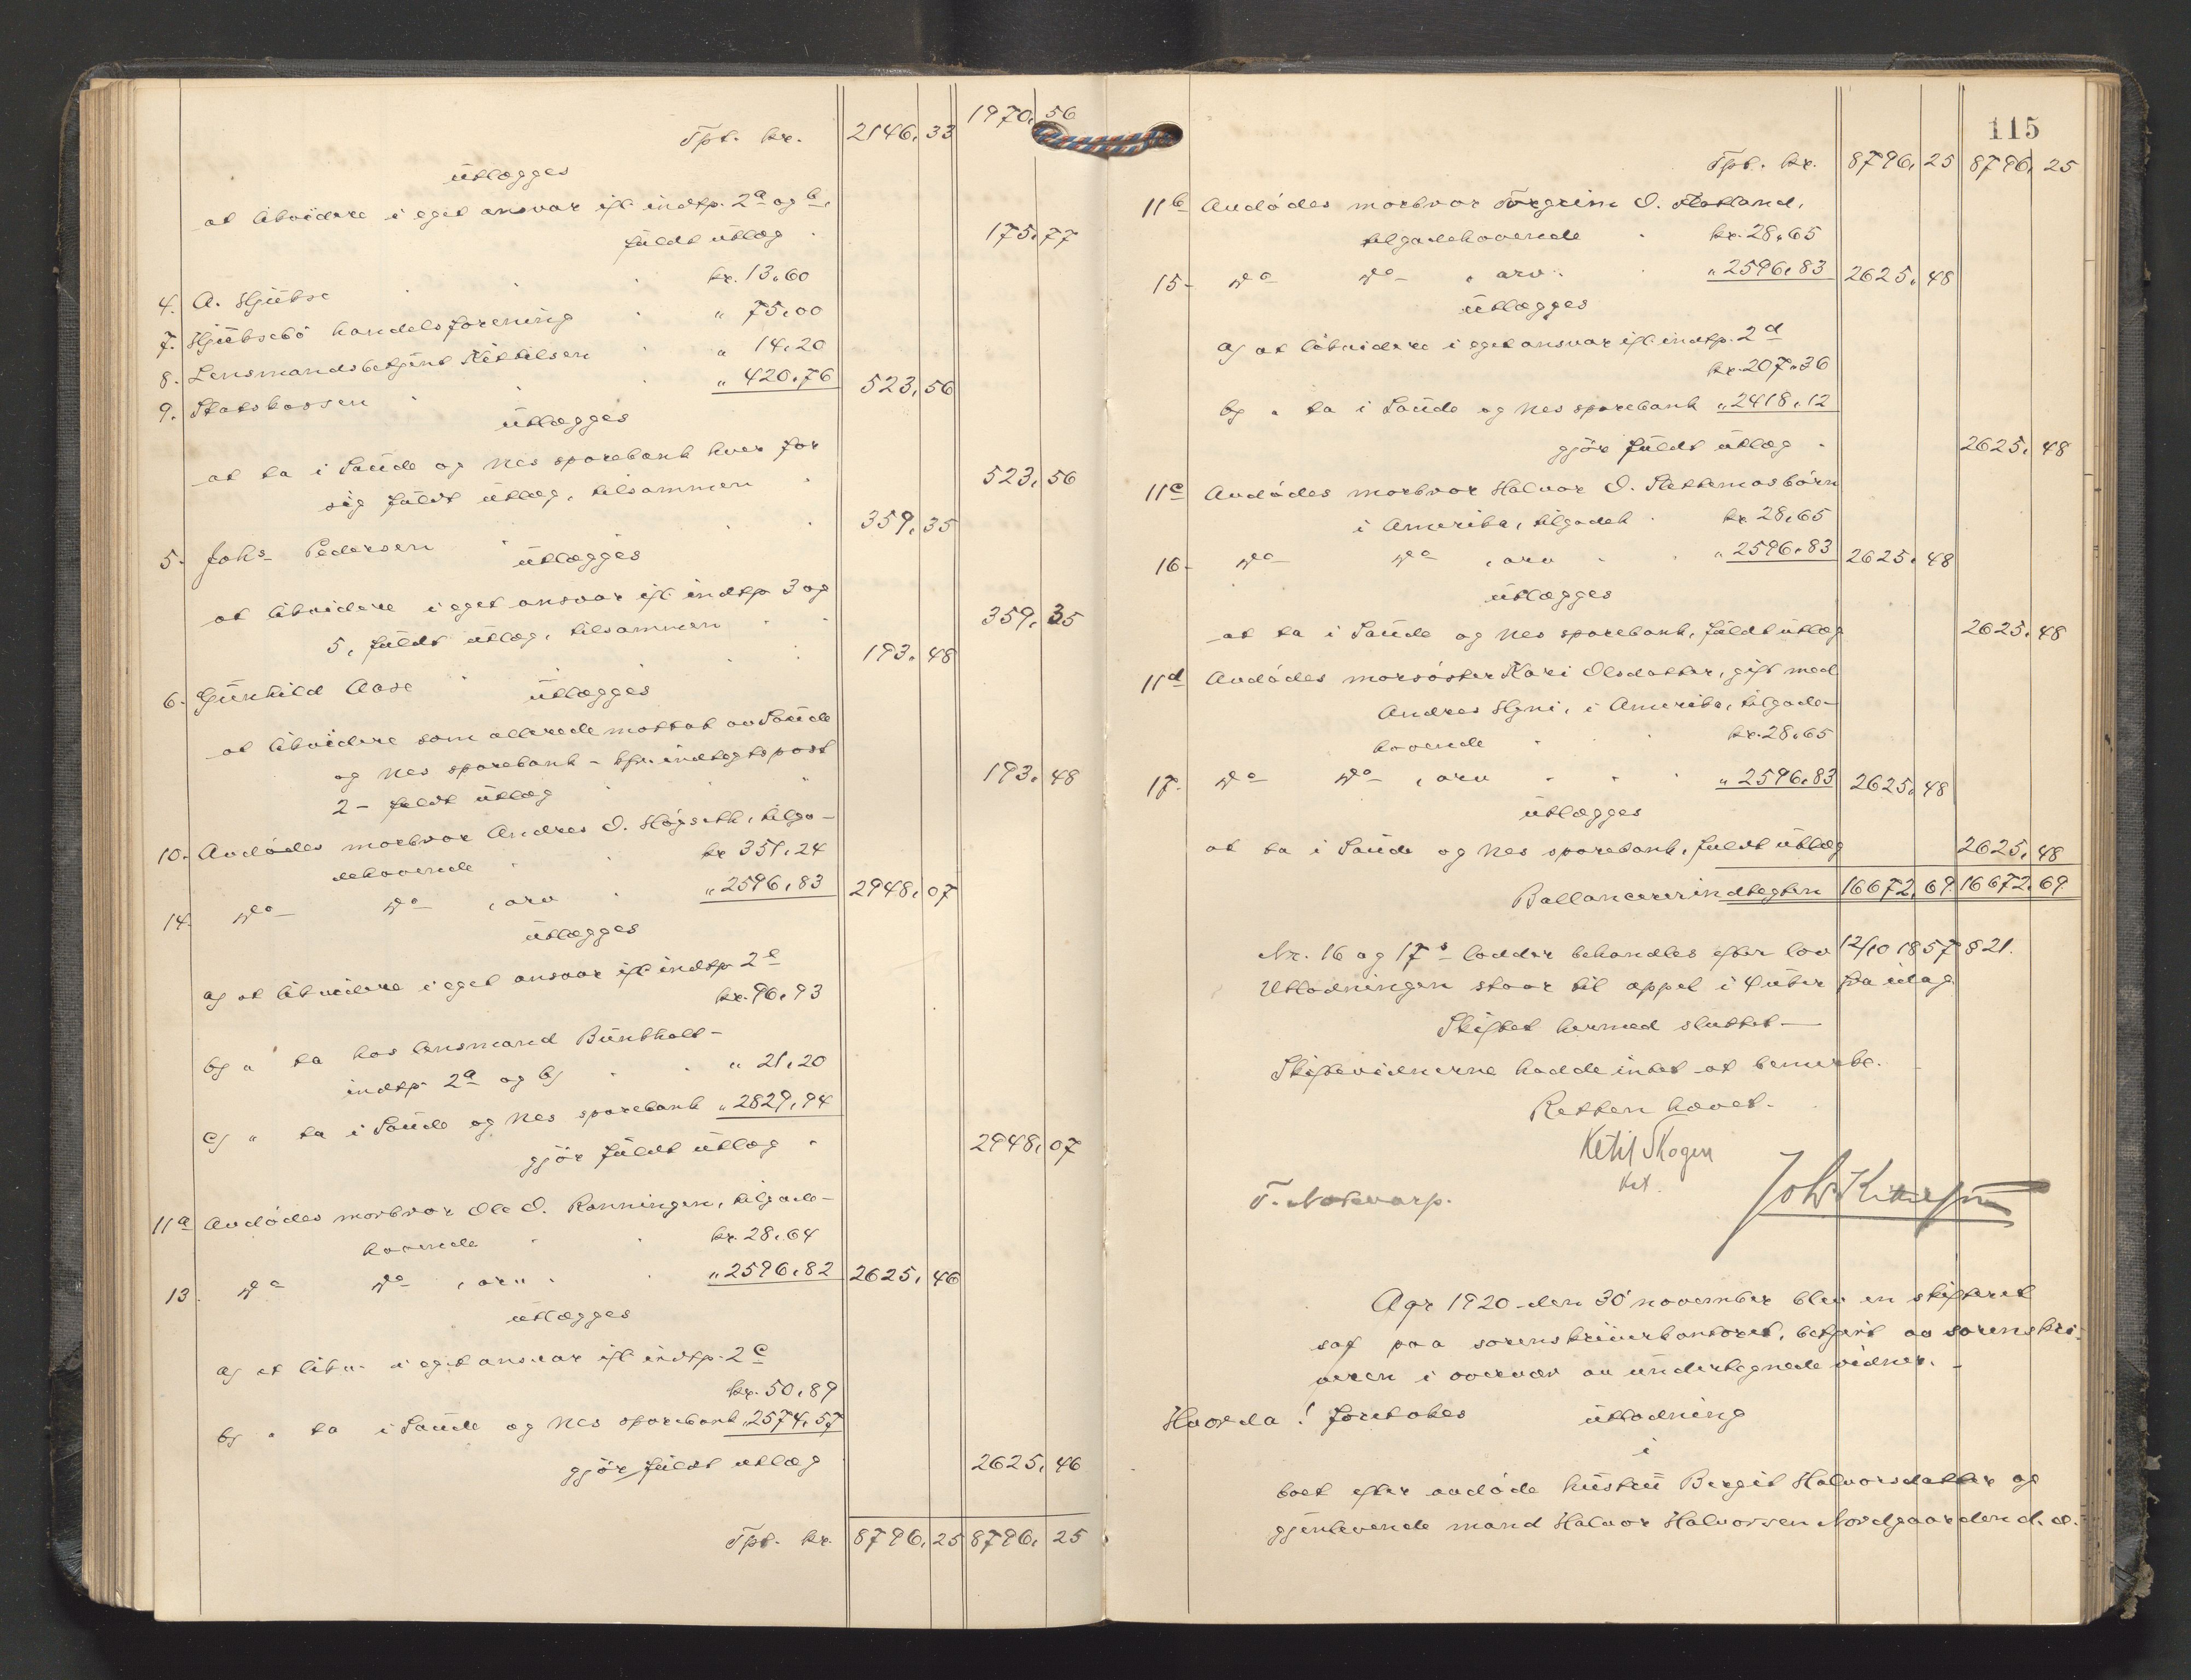 Tpt. kr. 2146,33 1970,56
utlægges
at likvidere i eget ansvar ifl indtp. 2a og b,
fuldt utlæg 175,77
4. A. Hjukse kr. 13,60
7. Hjuksebö handelsforening " 75,00
8. Lensmandsbetjent Kittilsen " 14,20
9. Statskassen " 420,76 523,56
utlægges
at ta i Saude og Nes sparebank hver for
sig fuldt utlæg, tilsammen 523,56
5. Johs. Pedersen 359,35
utlægges
at likvidere i eget ansvar ifl indtp 3 og
5, fuldt utlæg, tilsammen 359,35
6. Gunhild Aase 193,48
utlægges
at likvidere som allerede mottat av Saude
og Nes sparebank - kfr. indtegtspost
2 - fuldt utlæg 193,48
10. Avdödes morbror Andres O. Högseth, tilgo-
dehavende kr 351,24
14. do do , arv " 2596,83 2948,07
utlægges
a) at likvidere i eget ansvar ifl indtp 2e
kr. 96,93
b) " ta hos lensmand Bunkholt -
indtp 2a og b) " 21,20
c) " ta i Saude og Nes sparebank " 2829,94
gjör fuldt utlæg 2948,07
11a Avdödes morbror Ole O. Rønningen, tilgode-
havende kr. 28,64
13. do do , arv " 2596,82 2625,46
utlægges
a) at likv. i eget ansvar ifl indtp. 2c
kr. 50,89
b) " ta i Saude og Nes sparebank " 2574,57
gjör fuldt utlæg 2625,46
Tpt. kr. 8796,25 8796,25
115
Tpt. kr. 8796,25 8796,25
11b Avdödes morbror Torgrim O. Flatland,
tilgodehavende kr. 28,65
15- do do , arv " 2596,83 2625,48
utlægges
a) at likvidere i eget ansvar ifl indtp. 2d
kr. 207,36
b) " ta i Saude og Nes sparebank " 2418,12
gjör fuldt utlæg 2625,48
11c Avdödes morbror Halvor O. Slettemos börn
i Amerika, tilgodeh. kr 28,65
16- do do , arv " 2596,83 2625,48
utlægges
at ta i Saude og Nes sparebank, fuldt utlæg 2625,48
11d Avdödes morsöster Kari Olsdatter, gift med
Andres Hyni, i Amerika, tilgode-
havende kr. 28,65
17. do do , arv " 2596,83 2625,48
utlægges
at ta i Saude og Nes sparebank, fuldt utlæg 2625,48
Ballancerer indtegten 16672,69 16672,69
Nr. 16 og 17s lodder behandles efter lov 12/10 1857 § 21.
Utlodningen staar til appel i 4 uker fra idag.
Skiftet hermed sluttet -
Skiftevidnerne hadde intet at bemerke.
Retten hævet.
Ketil Skogen
kst.
T. Notevarp. Joh Kittilsen
Aar 1920 den 30' november blev en skifteret
sat paa sorenskriverkontoret, betjent av sorenskri-
veren i overvær av undertegnede vidner. -
Hvorda! foretokes utlodning
i
boet efter avdöde hustru Bergit Halvorsdatter og
gjenlevende mand Halvor Halvorsen Nordgaarden d. æ.